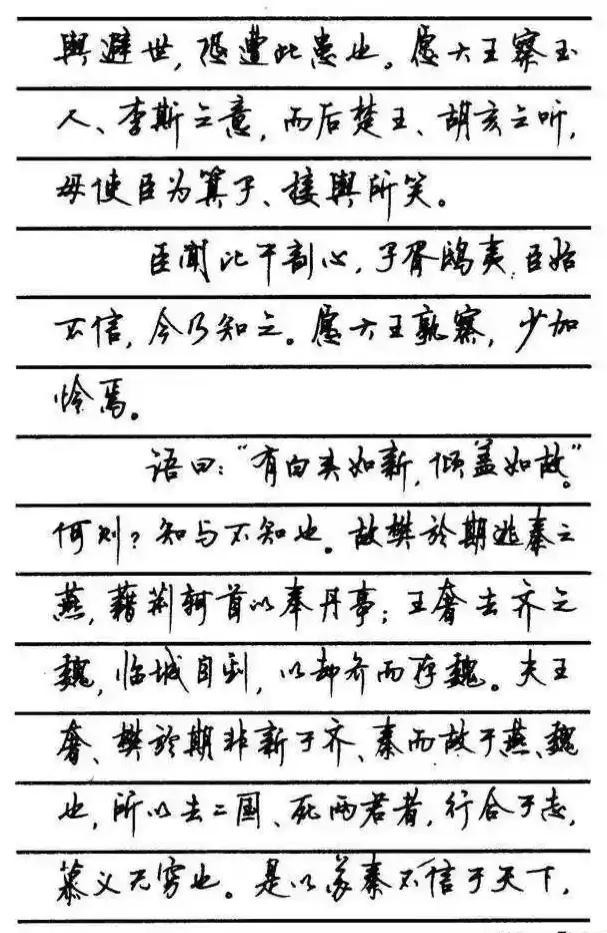 舆避世，恐遭此患也。愿大王察玉
人、李斯之意，而后楚王、胡亥之听，
毋使臣为箕子、接舆所笑。
臣闻比干剖心，子胥鸱夷，臣始
不信，今乃知之。愿大王孰察，少加
怜焉。
语曰：“有白头如新，倾盖如故”。
何则？知与不知也。故樊於期逃秦之
燕，藉荆轲首以奉丹事；王奢去齐之
魏，临城自刭，以却齐而存魏。夫王
奢、樊於期非新于齐、秦而故于燕、魏
也，所以去二国、死两君者，行合于志，
慕义无穷也。是以苏秦不信于天下，